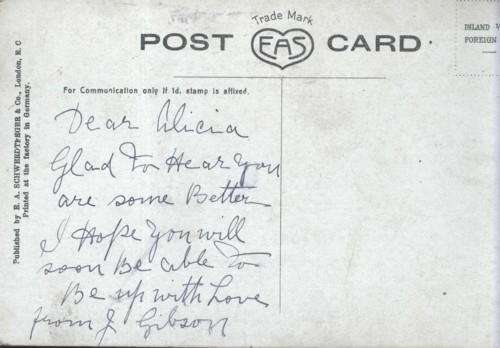 Trade Mark
POST EAS CARD
INLAND
FOREIGN
For Communication only if 1d. stamp is affixed.
Published by E. A. SCHWERDTFEGER & Co., London, E. C
Printed at the factory in Germany.
Dear Alicia
Glad To Hear You
are some Better
I Hope You will
soon Be able To
Be up with Love
from J. Gibson